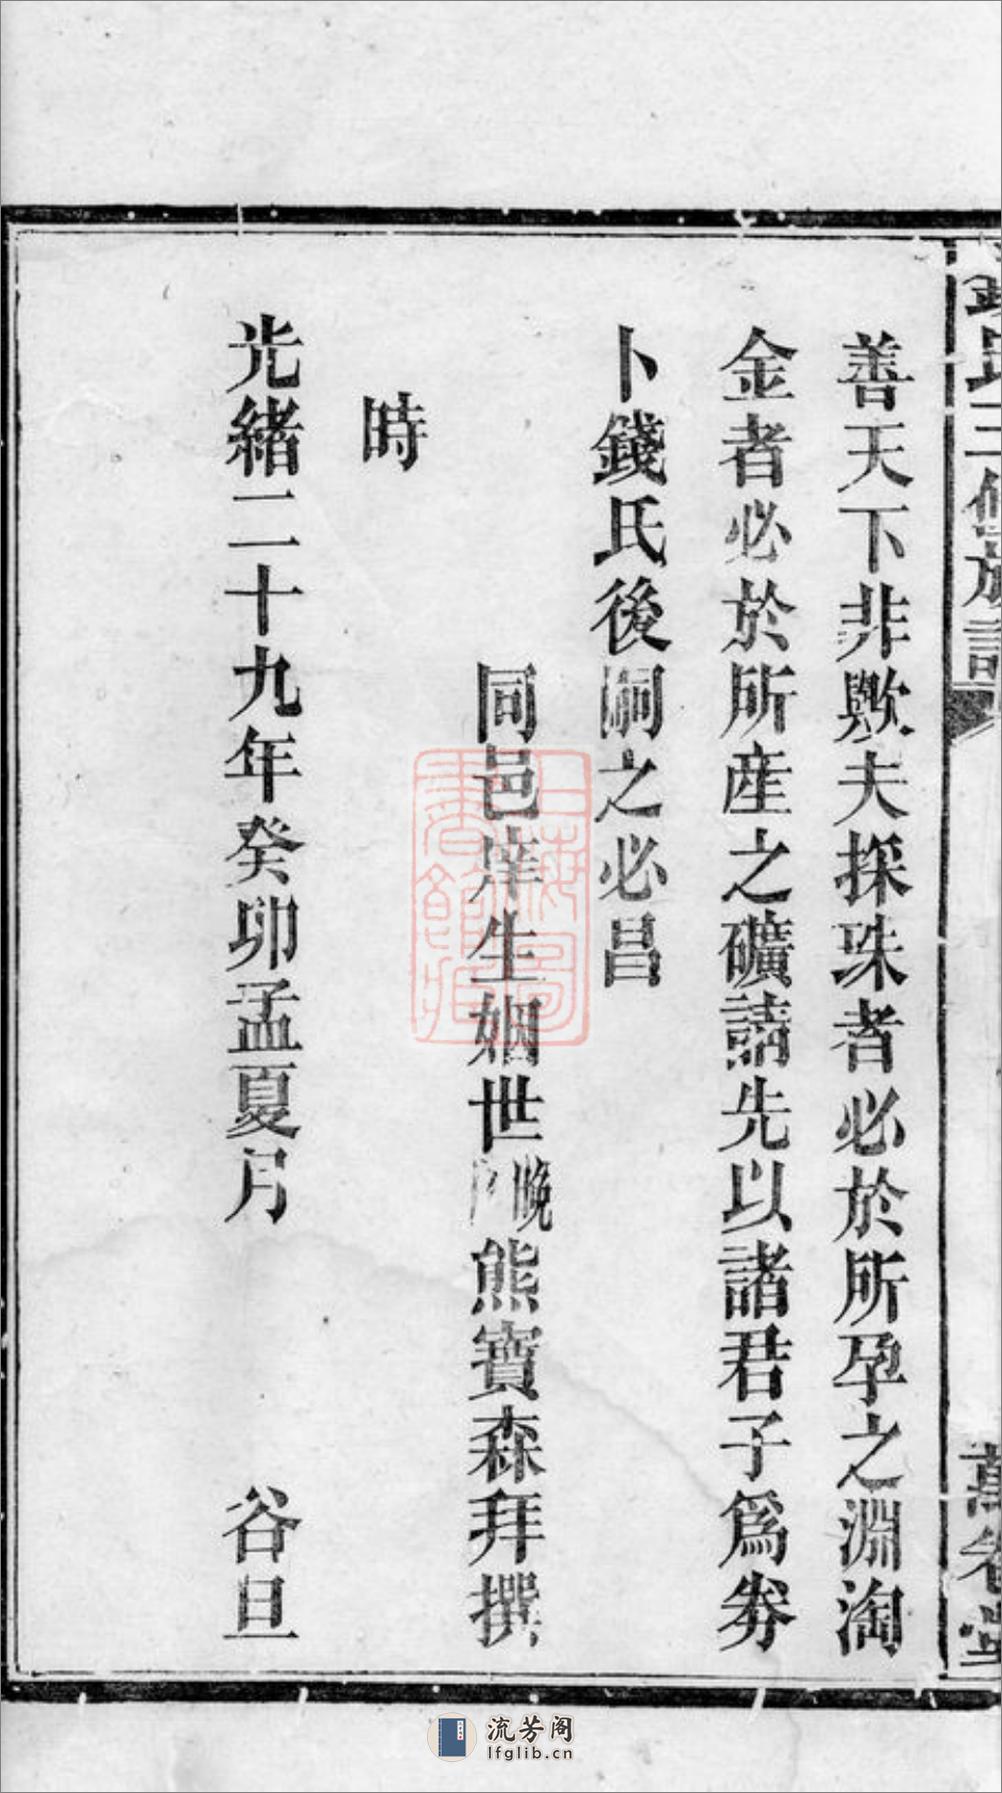 善天下非歟夫探珠者必於所孕之淵淘
金者必於所產之礦請先以諸君子爲券
卜錢氏後嗣之必昌
同邑庠生姻世晚熊寶森拜撰
時
光緒二十九年癸卯孟夏月 谷旦
錢氏三修族譜
萬卷堂
上海圖書館藏
流芳阁
lfglib.cn